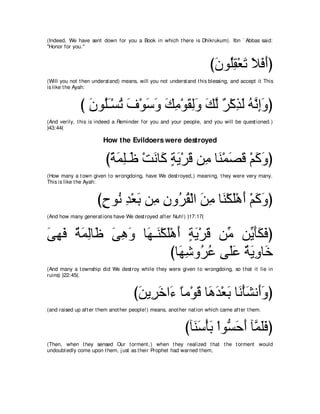 (Indeed, We have sent down for you a Book in which there is Dhikrukum). Ibn `Abbas said:
"Honor for you."
(أَفَلاَ تَعْقِلُونَ)
(Will you not then understand) means, will you not understand this blessing, and accept it This
is like the Ayah:
(وَإِنَّهُ لَذِكْرٌ لَّكَ وَلِقَوْمِكَ وَسَوْفَ تُسْـَلُونَ )
(And verily, this is indeed a Reminder for you and your people, and you will be questioned.)
)43:44(
How the Evildoers were destroyed
(وَكَمْ قَصَمْنَا مِن قَرْيَةٍ كَانَتْ ظَـلِمَةً)
(How many a town given to wrongdoing, have We destroyed,) meaning, they were very many.
This is like the Ayah:
(وَكَمْ أَهْلَكْنَا مِنَ الْقُرُونِ مِن بَعْدِ نُوحٍ)
(And how many generations have We destroyed after Nuh!) )17:17(
(فَكَأَيِّن مِّن قَرْيَةٍ أَهْلَكْنَـهَا وَهِىَ ظَالِمَةٌ فَهِىَ
خَاوِيَةٌ عَلَى عُرُوشِهَا)
(And many a township did We destroy while they were given to wrongdoing, so that it lie in
ruins) )22:45(.
(وَأَنشَأْنَا بَعْدَهَا قَوْماً ءَاخَرِينَ)
(and raised up after them another people!) means, another nation which came after them.
(فَلَمَّآ أَحَسُّواْ بَأْسَنَآ)
(Then, when they sensed Our torment,) when they realized that the torment would
undoubtedly come upon them, just as their Prophet had warned them,